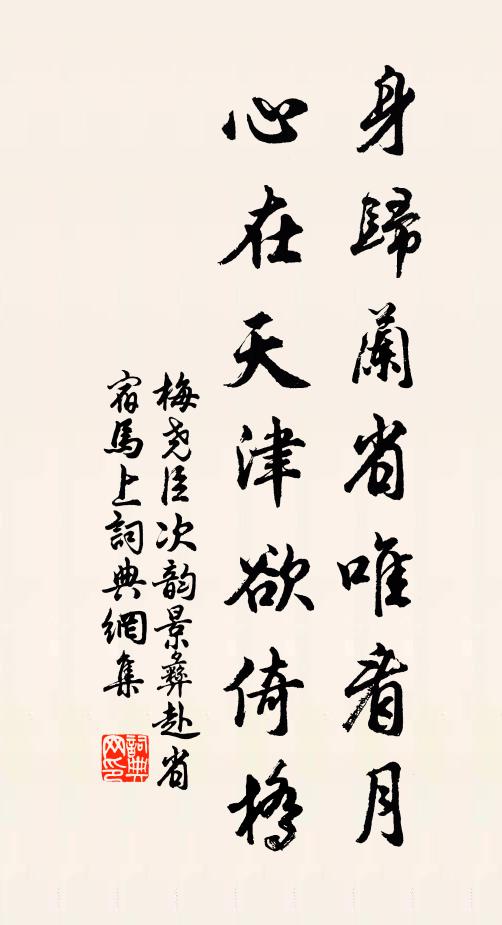 身歸蘭省唯看月
心在天津欲倚橋
梅堯臣次韵景彝赴省
宿馬上詞典網集
詞典
网印